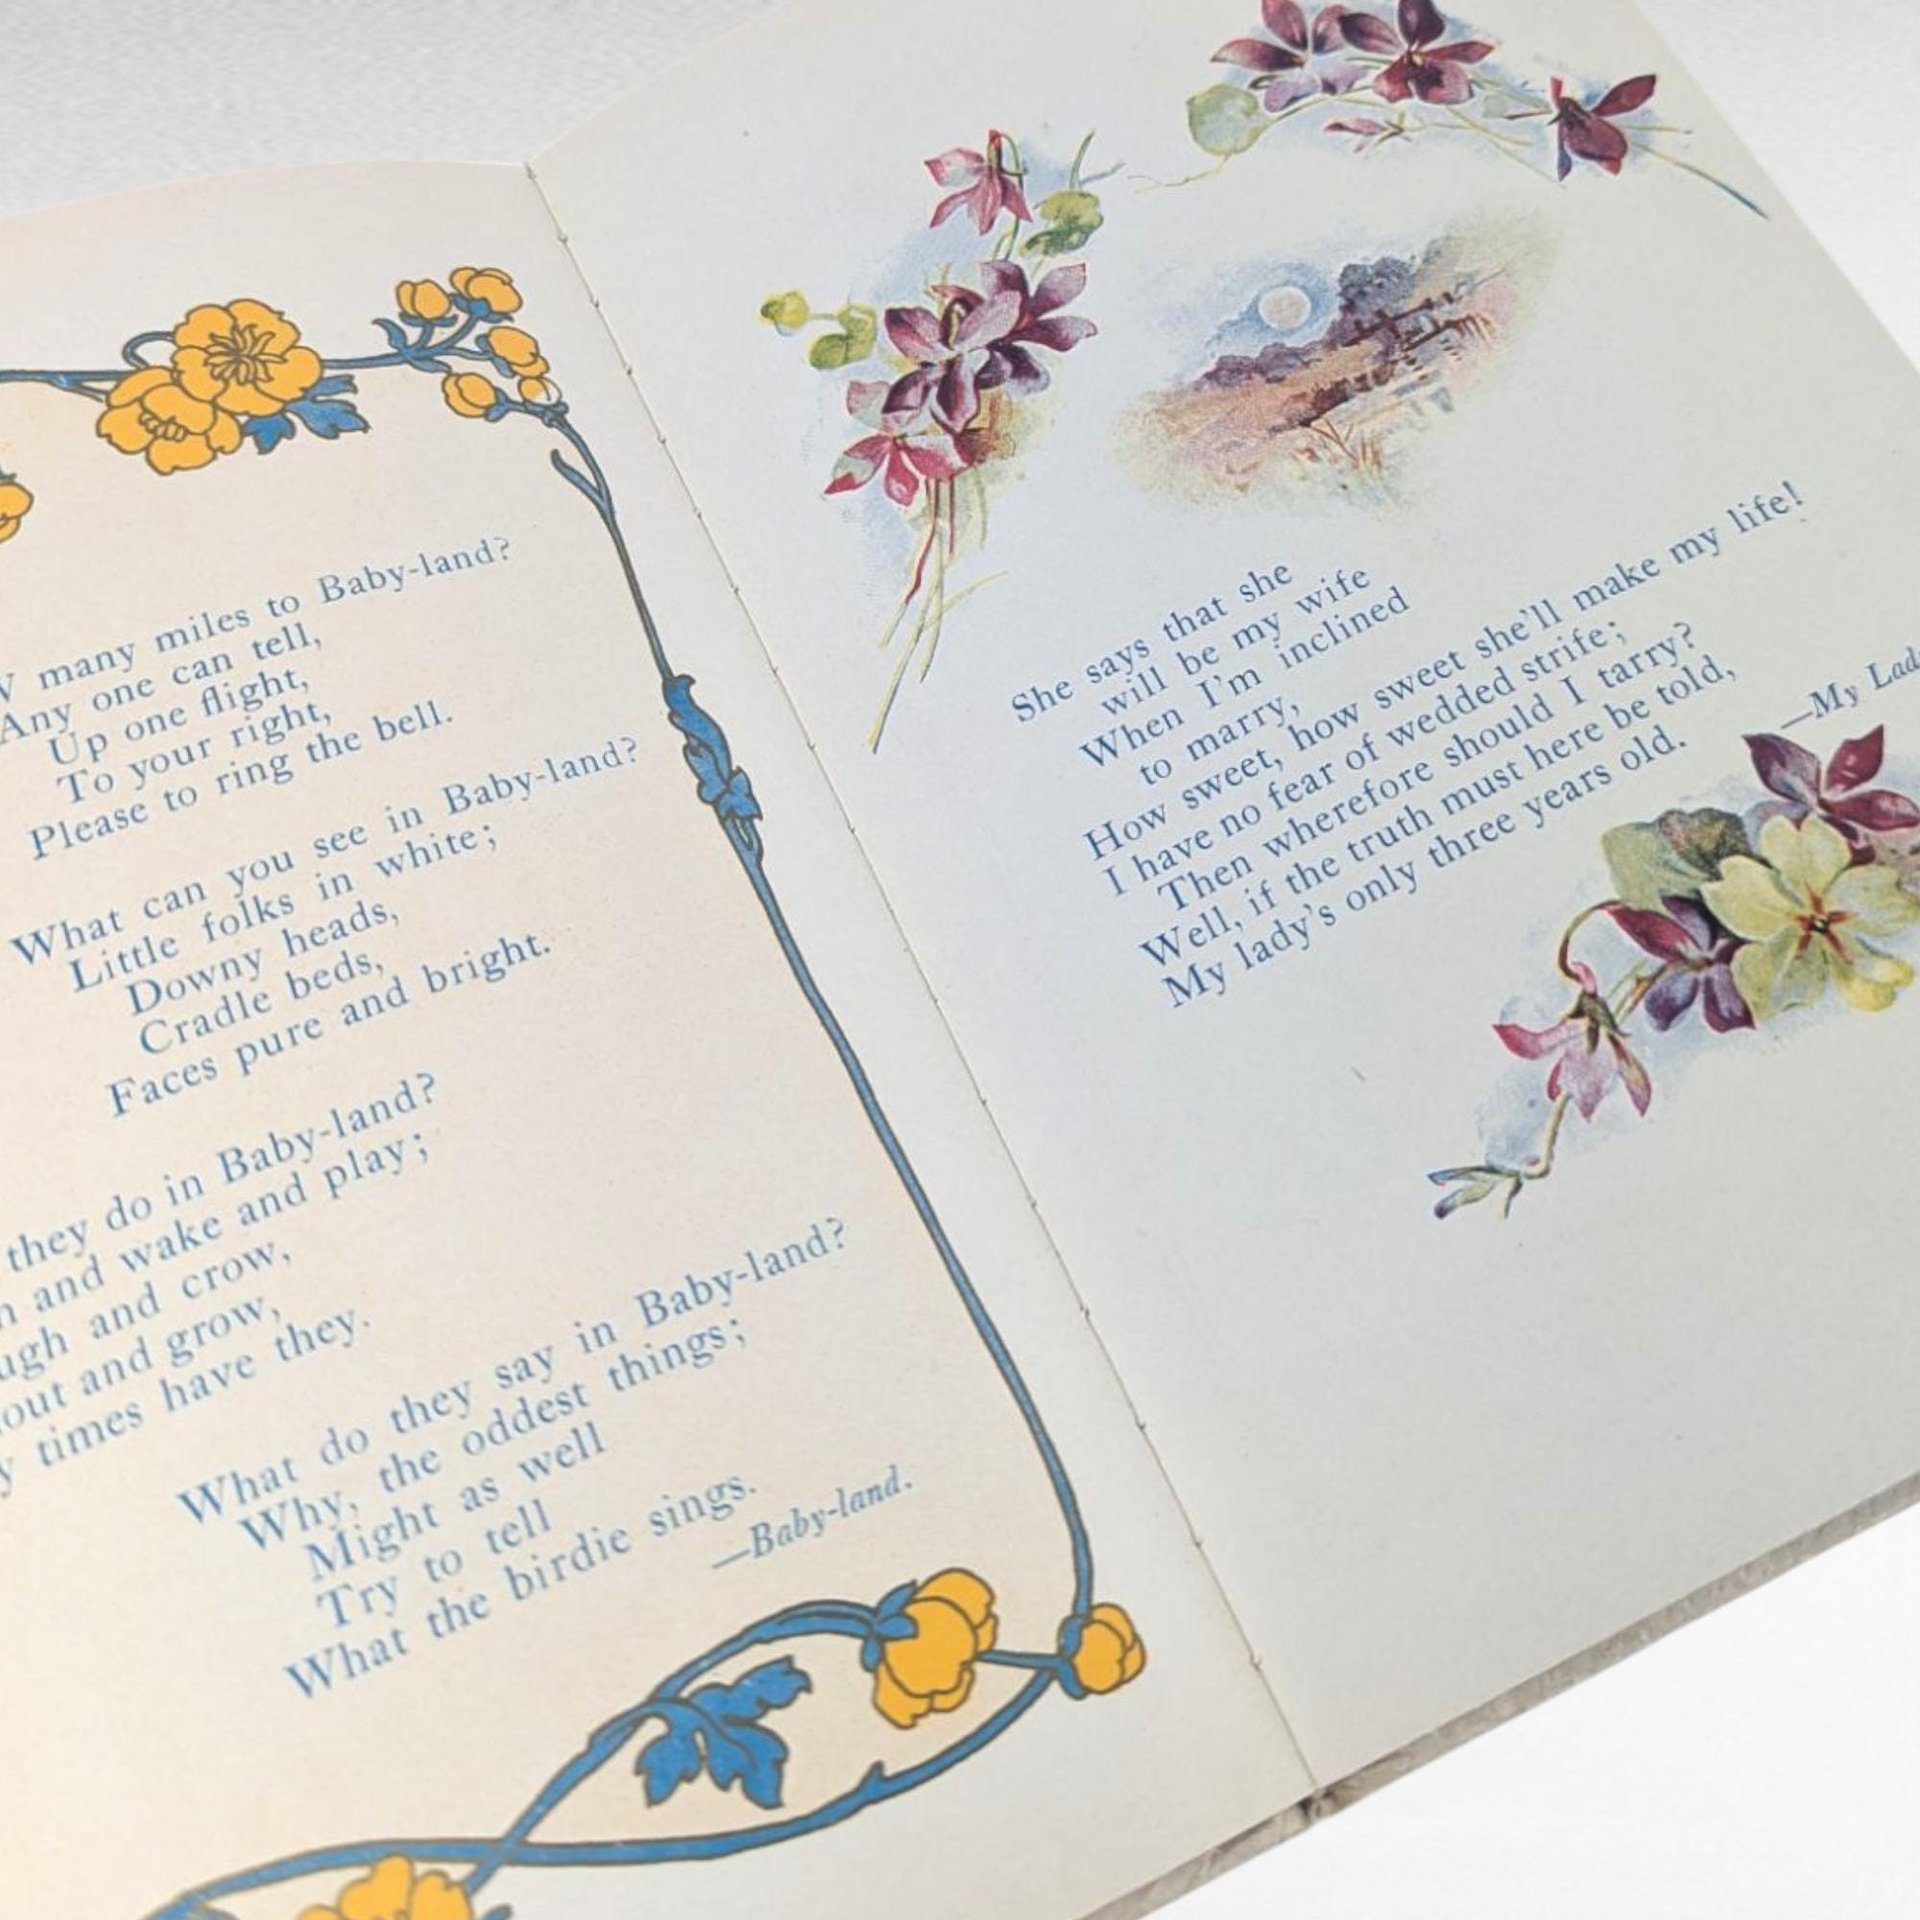 many miles to Baby-land?
Any one can tell,
Up one flight,
To your right,
Please to ring the bell.
What can you see in Baby-land?
Little folks in white;
Downy heads,
Cradle beds,
Faces pure and bright.
they do in Baby-land?
and wake and play;
and crow,
and grow,
times have they.
What do they say in Baby-land?
Why, the oddest things;
Might as well
Try to tell
What the birdie sings.
—Baby-land.
She says that she
will be my wife
When I'm inclined
to marry,
How sweet, how sweet she'll make my life!
I have no fear of wedded strife;
Then wherefore should I tarry?
Well, if the truth must here be told,
My lady's only three years old.
—My